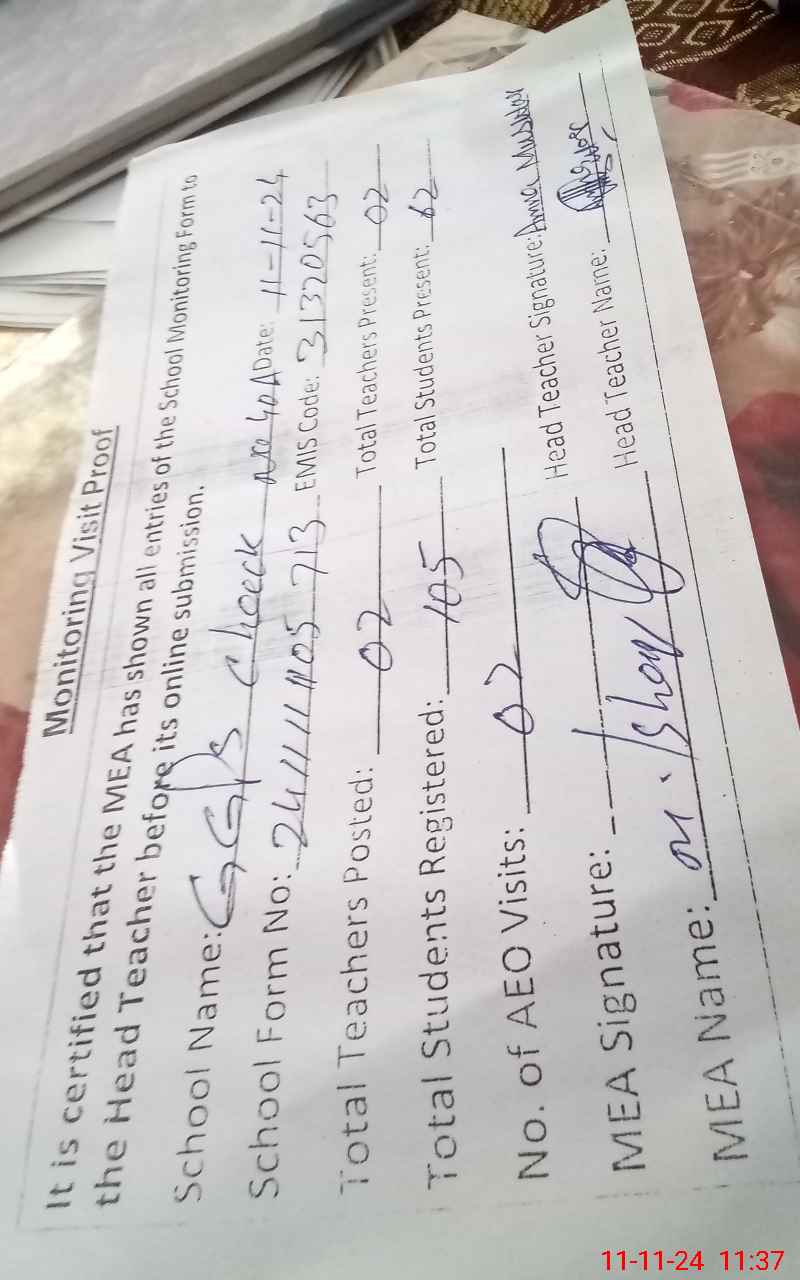 Monitoring Visit Proof
It is certified that the MEA has shown all entries of the School Monitoring Form to
the Head Teacher before its online submission.
School Name: GGPS Chock Date: 11-11-24
School Form No: EMIS Code: 31320563
Total Teachers Posted: 02 Total Teachers Present: 02
Total Students Registered: 105 Total Students Present: 62
No. of AEO Visits: 02 Head Teacher Signature:
MEA Signature: Head Teacher Name:
MEA Name: M.
11-11-24 11:37